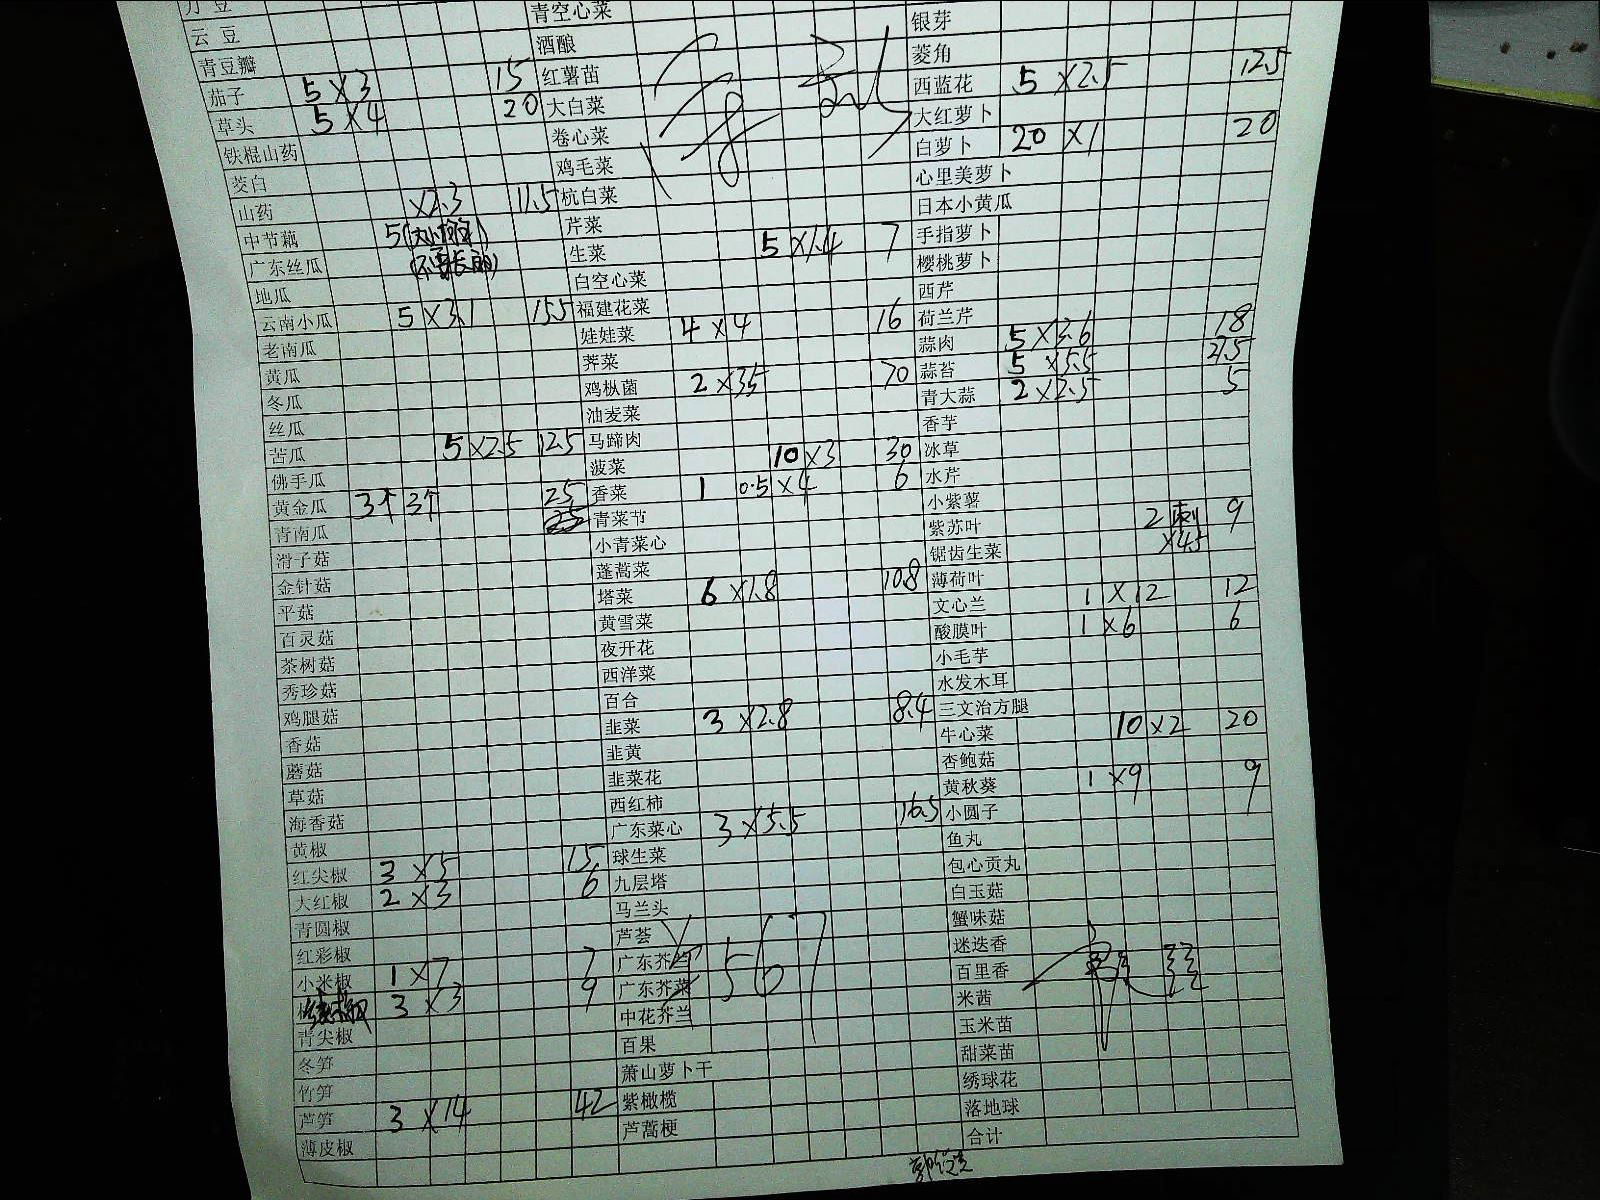 云豆
青豆瓣
茄子 5×3 15
草头 5×4 20
铁棍山药
茭白
山药 ×2.3 11.5
中节藕 5
广东丝瓜
地瓜
云南小瓜 5×3.1 15.5
老南瓜
黄瓜
冬瓜
丝瓜
苦瓜 5×2.5 12.5
佛手瓜
黄金瓜 3个 3个 25
青南瓜 25
滑子菇
金针菇
平菇
百灵菇
茶树菇
秀珍菇
鸡腿菇
香菇
蘑菇
草菇
海香菇
黄椒
红尖椒 3×5 15
大红椒 2×3 6
青圆椒
红彩椒
小米椒 1×7 7
3×3 9
青尖椒
冬笋
竹笋
芦笋 3×14 42
薄皮椒
青空心菜
酒酿
红薯苗
大白菜
卷心菜
鸡毛菜
杭白菜
芹菜
生菜 5×1.4 7
白空心菜
福建花菜
娃娃菜 4×4 16
荠菜
鸡枞菌 2×35 70
油麦菜
马蹄肉
菠菜 10×3 30
香菜 1 0.5×4 6
青菜节
小青菜心
蓬蒿菜
塔菜 6×1.8 10.8
黄雪菜
夜开花
西洋菜
百合
韭菜 3×2.8 8.4
韭黄
韭菜花
西红柿
广东菜心 3×5.5 16.5
球生菜
九层塔
马兰头
芦荟
广东芥兰
广东芥菜 ¥567
中花芥兰
百果
萧山萝卜干
紫橄榄
芦蒿梗
银芽
菱角
西蓝花 5×2.5 12.5
大红萝卜
白萝卜 20×1 20
心里美萝卜
日本小黄瓜
手指萝卜
樱桃萝卜
西芹
荷兰芹
蒜肉 5×3.6 18
蒜苔 5×5.5 27.5
青大蒜 2×2.5 5
香芋
冰草
水芹
小紫薯
紫苏叶 2刺 9
锯齿生菜 ×4.5
薄荷叶
文心兰 1×12 12
酸膜叶 1×6 6
小毛芋
水发木耳
三文治方腿
牛心菜 10×2 20
杏鲍菇
黄秋葵 1×9 9
小圆子
鱼丸
包心贡丸
白玉菇
蟹味菇
迷迭香
百里香
米茜
玉米苗
甜菜苗
绣球花
落地球
合计